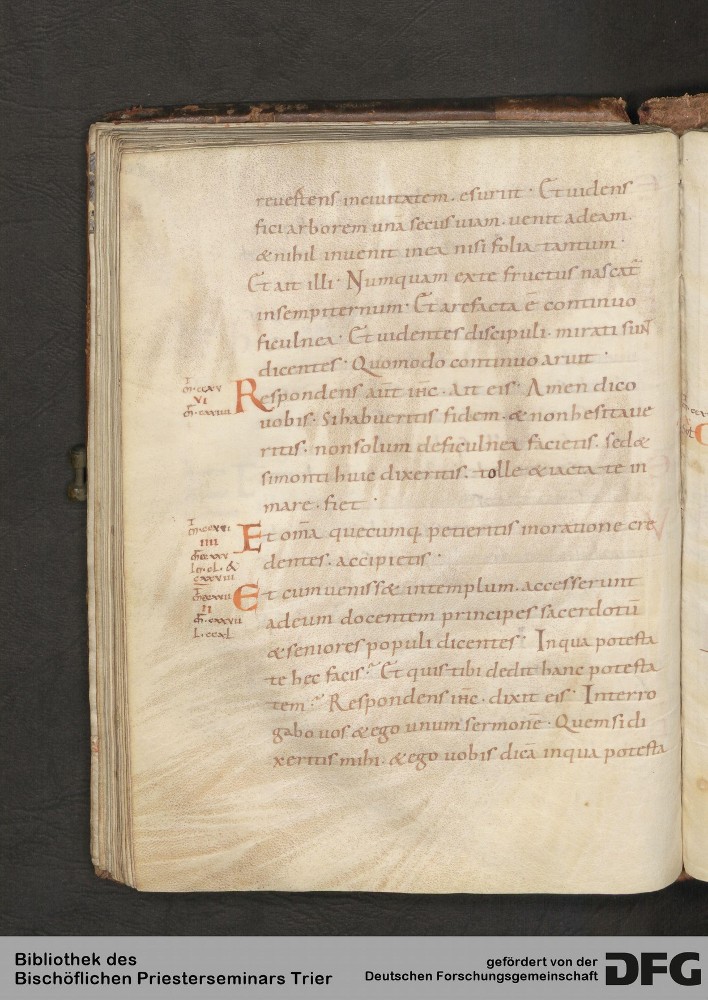 reuertens inciuitatem. esuriit· Et uidens
fici arborem unā secus uiam. uenit adeam.
& nihil inuenit inea nisi folia tantum·
Et ait illi· Numquam exte fructus nascat̄
insempiternum· Et arefacta ē continuo
ficulnea· Et uidentes discipuli. mirati sunt
dicentes· Quomodo continuo aruit·
Respondens aūt ihc. Ait eis· Amen dico
uobis. Sihabueritis fidem. & nonhesitaue
ritis. nonsolum deficulnea facietis. sed &
simonti huic dixeritis. tolle & iacta te in
mare. fiet·
Et om̄a quecumq; petieritis inoratione cre
dentes. accipietis·
Et cum uenisse& intemplum. accesserunt
adeum docentem principes sacerdotū
& seniores populi dicentes· Inqua potesta
te hec facis? Et quis tibi dedit hanc potesta
tem? Respondens ihc. dixit eis· Interro
gabo uos & ego unum sermone· Quem si di
xeritis mihi. & ego uobis dicā inqua potesta
Bibliothek des
Bischöflichen Priesterseminars Trier
gefördert von der
Deutschen Forschungsgemeinschaft
DFG